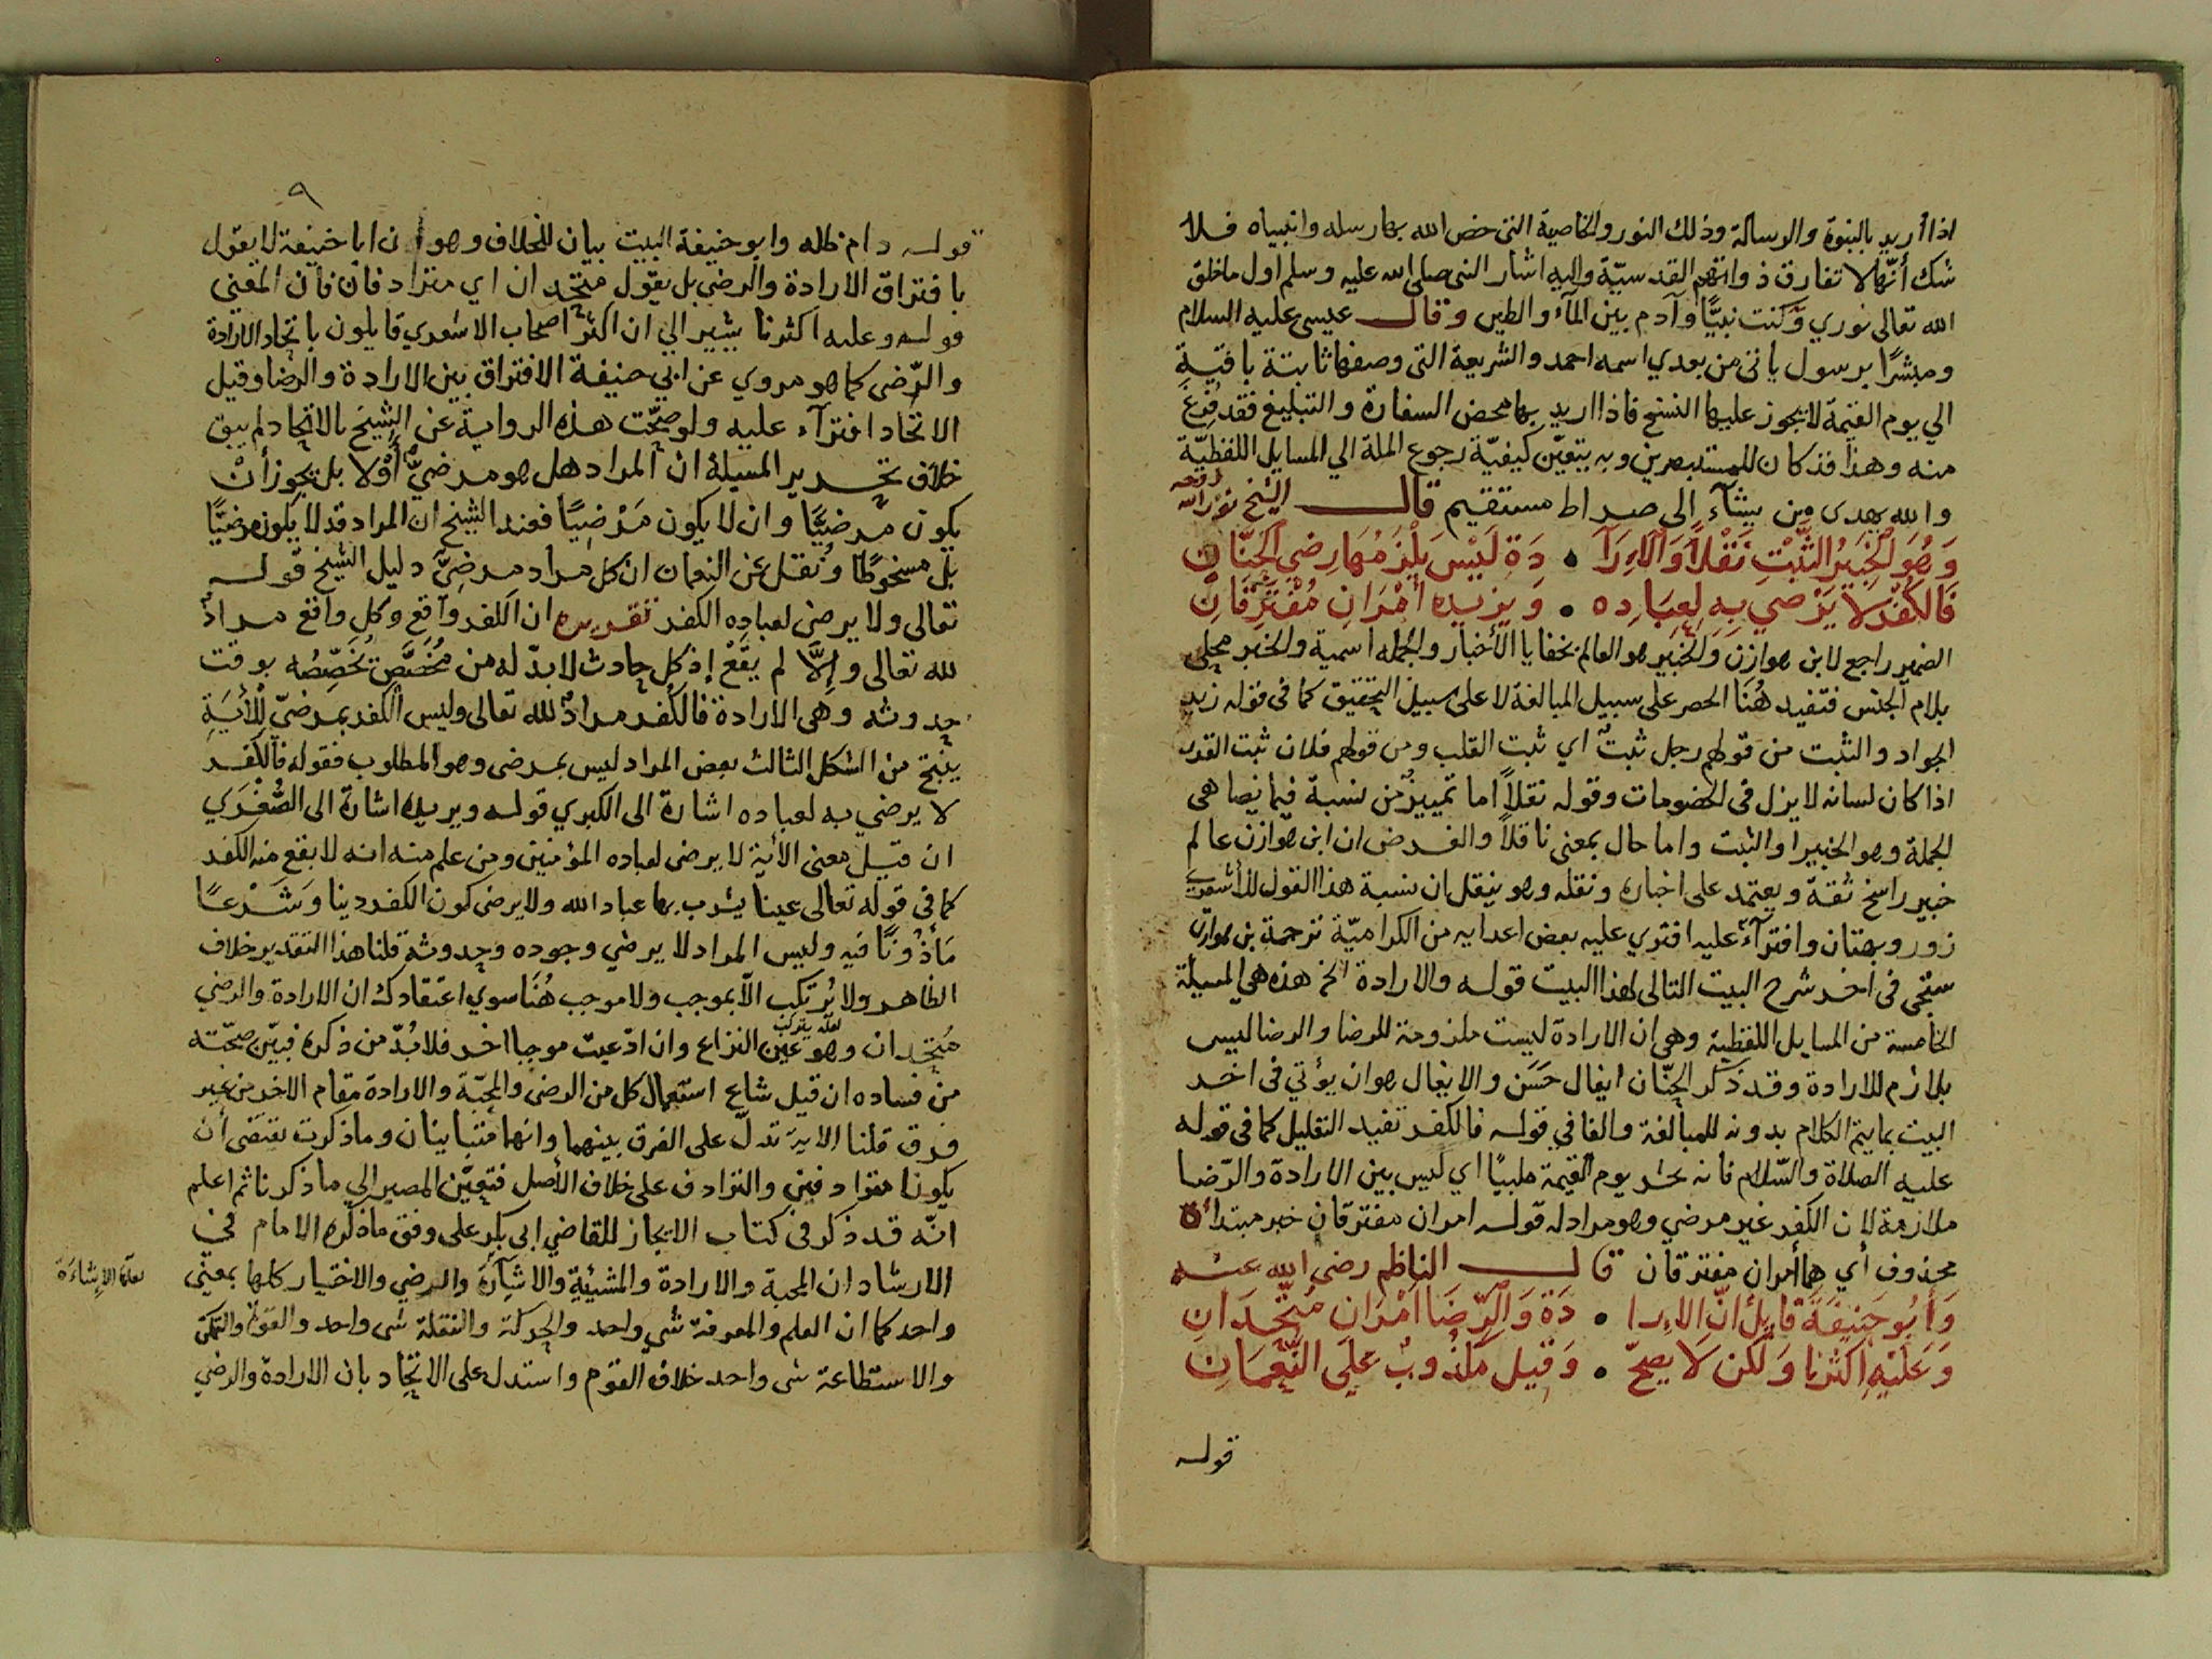 اذا أريد بالنبوة والرسالة وذلك النور والخاصية التي خص الله بها رسله وانبياه فلا
شك أنّها لا تفارق ذواتهم القدسيّة واليه اشار النبي صلى الله عليه وسلم اول ما خلق
الله تعالى نوري وكنت نبيًّا وآدم بين المآء والطين وقال عيسى عليه السلام
ومبشرًا برسول ياتى من بعدي اسمه احمد والشريعة التى وصفها ثابتة باقية
الي يوم القيمة لا يجوز عليها النسخ فاذا اريد بها محض السفارة والتبليغ فقد فرغ
منه وهذا قد كان للمستبصرين وبه يتعيّن كيفيّة رجوع الملة الي المسايل اللفظيّة
والله يهدى من يشآء الى صراط مستقيم قال الشيخ نور الله
وَهُوَ الْخَبِيرُ الثَّبْتِ نَقْلاً وَالاِرَآ • دَةِ لَيْسَ يَلْزَمُهَا رِضي الحَنَّانِ
فَالكُفْرُ لاَ يَرْضي بِهِ لِعِبَادِه • وَيُرِيدُه أَمْرَانِ مُفْتَرِقَانِ
الضمير راجع لابن هوازن والخبير هو العالم بخفايا الأخبار والجمله اسمية والخبر محلى
بلام الجنس فتفيد هُنَا الحصر على سبيل المبالغة لا على سبيل التحقيق كما فى قوله زيد
الجواد والثبت من قولهم رجل ثبت اي ثبت القلب ومن قولهم فلان ثبت القدر
اذا كان لسانه لا يزل فى الخصومات وقوله نقلاً اما تمييز من نسبة
الجملة وهو الخبير او الثبت واما حال بمعنى ناقلاً والغرض ان ابن هوازن عالم
خبير راسخ ثقة ويعتمد على اخباره ونقله وهو ينقل ان نسبة هذا القول للأشعري
زور وبهتان وافترآء عليه افتري عليه بعض اعدايه من الكراميّة ترجمة بن هوازن
ستجي فى اخر شرح البيت التالى لهذا البيت قوله والارادة الخ هذه هي المسيلة
الخامسة من المسايل اللفظية وهى ان الارادة ليست ملزومة للرضا والرضا ليس
بلازم للارادة وقد ذكر الحنّان ايغال حَسَن والايغال هو ان يؤتي فى اخر
البيت بما يتم الكلام بدونه للمبالغة والفا في قوله فالكفر تفيد التعليل كما فى قوله
عليه الصلاة والسّلام فانه يحشر يوم القيمة ملبيًا اي ليس بين الارادة والرّضا
ملازمة لان الكفر غير مرضي وهو مراد له قوله امران مفترقان خبر مبتدا
محذوف أي هما أمران مفترقان قال الناظم رضى الله عنه
وَأَبُو حَنِيفَةَ قَايِلٌ أنّ الاِرا • دَةَ وَالرِّضَا أَمْرَانِ مُتَّحِدَانِ
وَعَلَيْهِ أكثرُنا وَلَكِن لاَ يصحّ • وَقِيلَ مَكْذُوبٌ عَلَى النُّعْمَانِ
قوله
٩
قوله دام ظله وابو حنيفة البيت بيان للخلاف وهو ان ابا حنيفة لا يقول
بافتراق الارادة والرضي بل يقول متحدان اي مترادفان فان المعني
قوله وعليه اكثرنا يشير الي ان اكثر اصحاب الاشعري قايلون باتحاد الارادة
والرّضى كما هو مروي عن ابي حنيفة الافتراق بين الارادة والرضا وقيل
الاتحاد افترآء عليه ولو صحّت هذه الرواية عن الشيخ بالاتحاد لم يبق
خلاف تحرير المسيلة ان المراد هل هو مرضيٌّ أوْ لا بل يجوز أنْ
يكون مرضيًّا وان لا يكون مَرْضِيًا فعند الشيخ ان المراد قد لا يكون مرضيًّا
بل مسخوطًا ونُقل عن النعمان ان كل مراد مرضيّ دليل الشيخ قوله
تعالى ولا يرضى لعباده الكفر تقريره ان الكفر واقع وكل واقع مراد
لله تعالى وإلاَّ لم يقع إذ كل حادث لا بدّ له من مُخَصِّصٍ يُخَصِّصُه بوقت
حدوثه وهى الارادة فالكفر مرادٌ لله تعالى وليس الكفر بمرضيّ للأيَةِ
ينتج من الشكل الثالث بعض المراد ليس بمرضى وهو المطلوب فقوله فالكفر
لا يرضي به لعباده اشارة الى الكبري قوله ويريده اشارة الى الصُّغْرَي
ان قيل معنى الأية لا يرضى لعباده المؤمنين ومن علم منه انه لا يقع منه الكفر
كما فى قوله تعالى عينا يشرب بها عباد الله ولا يرضى كون الكفر دينا وشَرْعًا
مَأذُونًا فيه وليس المراد لا يرضي وجوده وحدوثه قلنا هذا التقدير خلاف
الظاهر ولا يُرتكب الاّ بموجب ولا موجب هُنَا سوي اعتقادك ان الارادة والرضي
مُتحدان وهو عين النزاع وان ادّعيت موجبا اخر فلا بُدّ من ذكره فبيّن صحّته
من فساده ان قيل شاع استعمال كل من الرضى والمحبّة والارادة مقام الاخر من غير
فرق قلنا الاية تدلّ على الفرق بينهما وانهما متباينان وما ذكرت يقتضى أن
يكونا مترادفين والترادف على خلاف الأصل فتعيّن المصير الي ما ذكرنا ثم اعلم
انّه قد ذكر فى كتاب الايجاز للقاضي ابى بكر على وفق ما ذكره الامام في
الارشاد ان المحبة والارادة والمشيئةِ والاشآرة والرضي والاختيار كلها بمعنى
لعلها الإشاءة
واحد كما ان العلم والمعرفة شي واحد والحركة والنقلة شى واحد والقوة والتمكن
والاستطاعة شى واحد خلاف القوم واستدل على الاتحاد بان الارادة والرضي